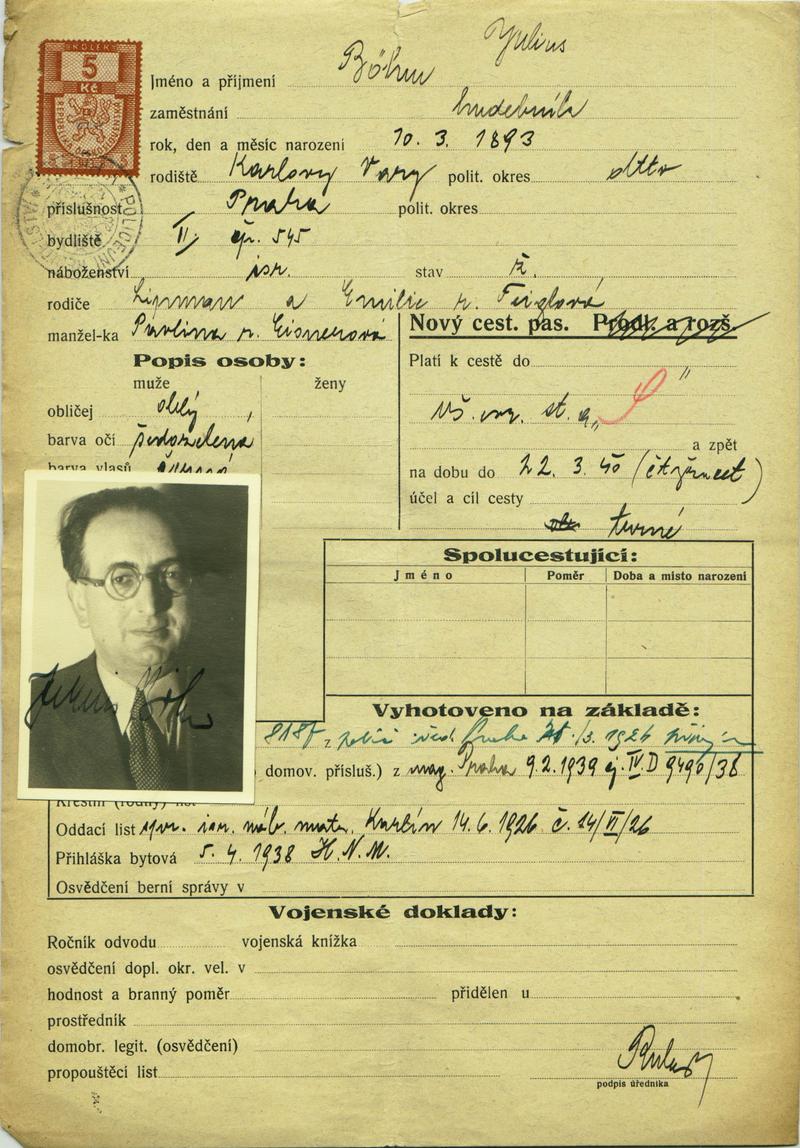 KOLEK
5
Kč
Julius
Jméno a příjmení Böhm
zaměstnání hudebník
rok, den a měsíc narození 10. 3. 1893
rodiště Karlovy Vary polit. okres dtto
příslušnost Praha polit. okres
bydliště II čp. 545
náboženství isr. stav ž.
rodiče Lipman a Emilie r. Feiglová
manžel-ka Pavlína r. Eisnerová
Nový cest. pas. Prodl. a rozš.
Popis osoby:
muže ženy
Platí k cestě do
obličej oválný
barva očí šedozelená
vš. evr. st. a „S"
a zpět
barva vlasů černá
na dobu do 22. 3. 40 (čtyřicet)
účel a cíl cesty
Spolucestující:
Jméno Poměr Doba a místo narození
Julius Böhm
Vyhotoveno na základě:
8187 z Praha /3. 1926
domov. přísluš.) z mag. Praha 9.2.1939 čj. IV.D 9496/38
Křestní (rodný) list
Oddací list isr. náb. mat. Karlín 14. 6. 1926 č. 14/II/26
Přihláška bytová 5. 4. 1938 H.N.M.
Osvědčení berní správy v
Vojenské doklady:
Ročník odvodu vojenská knížka
osvědčení dopl. okr. vel. v
hodnost a branný poměr přidělen u
prostředník
domobr. legit. (osvědčení)
propouštěcí list
podpis úředníka